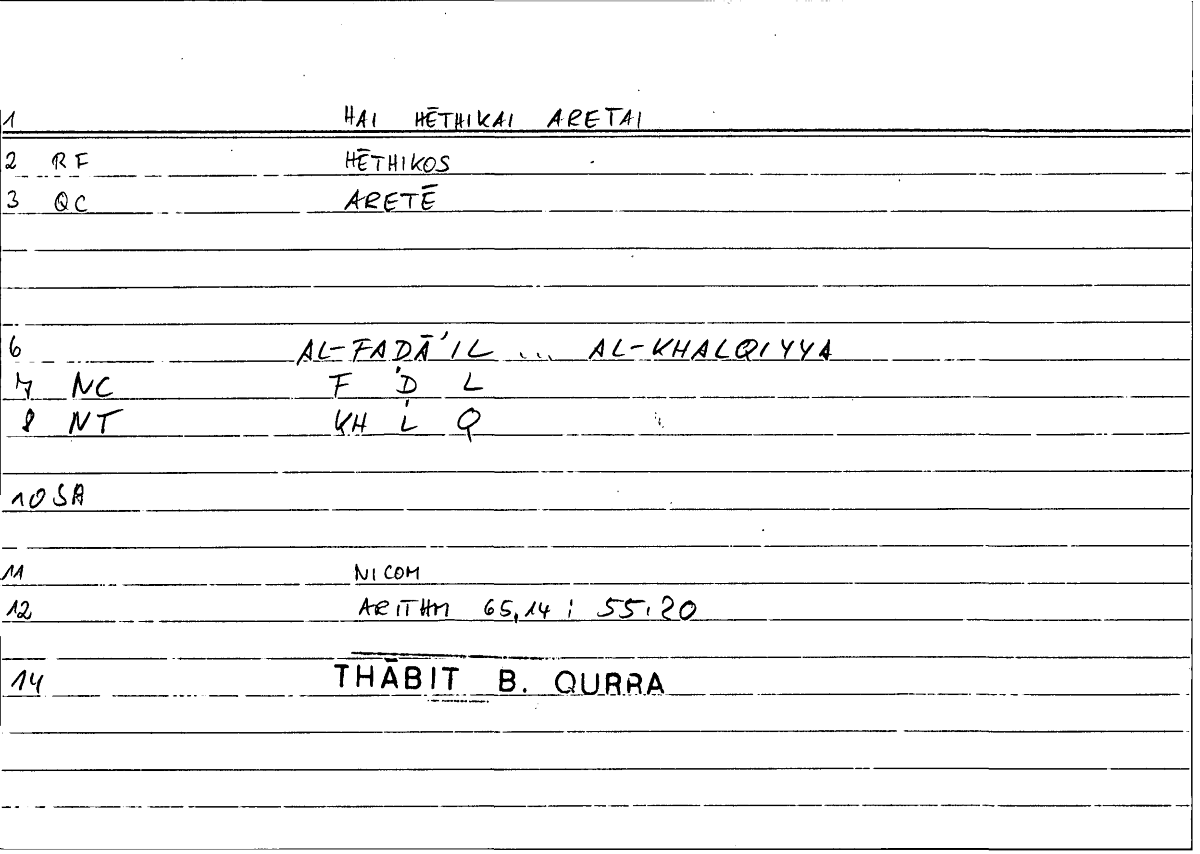 1 HAI HĒTHIKAI ARETAI
2 RF HĒTHIKOS
3 QC ARETĒ
6 AL-FAḌĀ'IL ... AL-KHALQIYYA
7 NC F Ḍ L
8 NT KH L Q
10 SA
11 NICOM
12 ARITHM 65,14 ; 55,20
14 THĀBIT B. QURRA